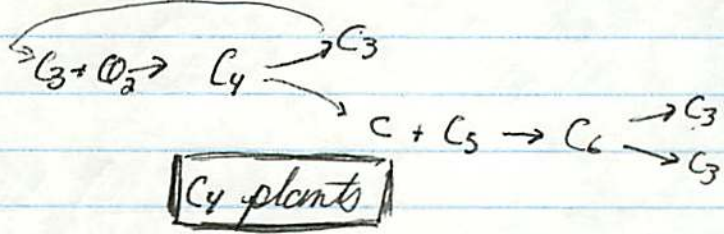 C3 + CO2 → C4 → C3
C + C5 → C6 → C3
→ C3
C4 plants